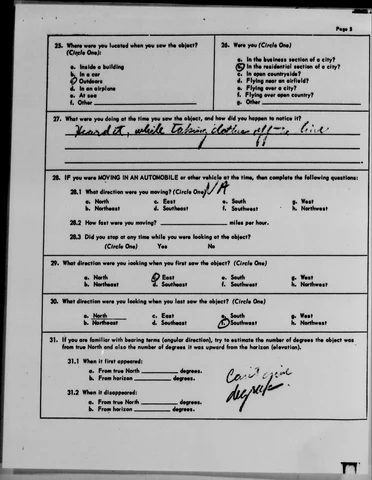 Page 3
25. Where were you located when you saw the object?
(Circle One):
a. Inside a building
b. In a car
c. Outdoors
d. In an airplane
e. At sea
f. Other
26. Were you (Circle One)
a. In the business section of a city?
b. In the residential section of a city?
c. In open countryside?
d. Flying near an airfield?
e. Flying over a city?
f. Flying over open country?
g. Other
27. What were you doing at the time you saw the object, and how did you happen to notice it?
Heard it, while taking clothes off line
28. IF you were MOVING IN AN AUTOMOBILE or other vehicle at the time, then complete the following questions:
28.1 What direction were you moving? (Circle One) N/A
a. North c. East e. South g. West
b. Northeast d. Southeast f. Southwest h. Northwest
28.2 How fast were you moving? miles per hour.
28.3 Did you stop at any time while you were looking at the object?
(Circle One) Yes No
29. What direction were you looking when you first saw the object? (Circle One)
a. North c. East e. South g. West
b. Northeast d. Southeast f. Southwest h. Northwest
30. What direction were you looking when you last saw the object? (Circle One)
a. North c. East e. South g. West
b. Northeast d. Southeast f. Southwest h. Northwest
31. If you are familiar with bearing terms (angular direction), try to estimate the number of degrees the object was
from true North and also the number of degrees it was upward from the horizon (elevation).
31.1 When it first appeared:
a. From true North degrees.
b. From horizon degrees.
31.2 When it disappeared:
a. From true North degrees.
b. From horizon degrees.
Can't give
degrees